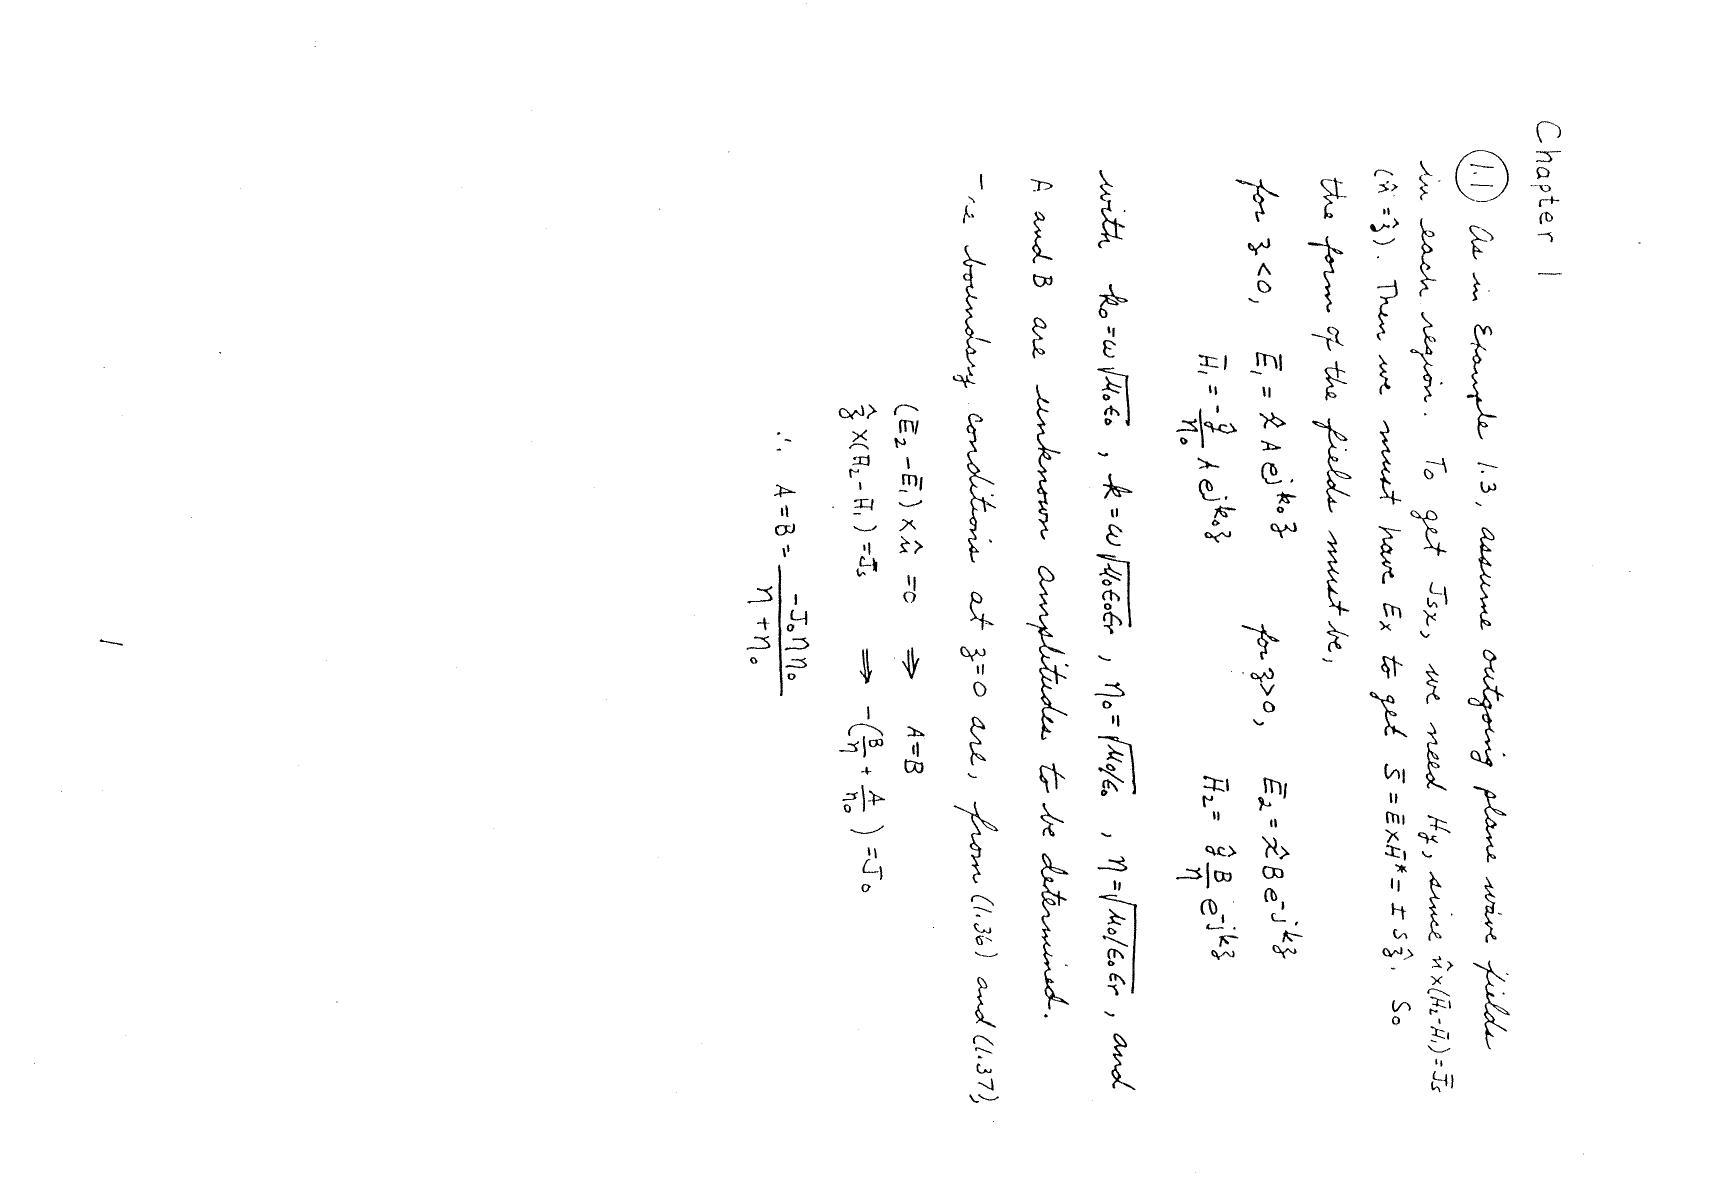 Chapter 1
1.1 As in Example 1.3, assume outgoing plane wave fields
in each region. To get Jsx, we need Hy, since n̂×(H̄₂-H̄₁)=J̄s
(n̂=ẑ). Then we must have Ex to get S̄=Ē×H̄*=±Sẑ. So
the form of the fields must be,
for z<0, Ē₁ = x̂ A e^{jk₀z} for z>0, Ē₂ = x̂ B e^{-jkz}
H̄₁ = -ŷ/η₀ A e^{jk₀z} H̄₂ = ŷ B/η e^{-jkz}
with k₀=ω√μ₀ε₀, k=ω√μ₀ε₀εr, η₀=√μ₀/ε₀, η=√μ₀/ε₀εr, and
A and B are unknown amplitudes to be determined.
boundary conditions at z=0 are, from (1.36) and (1.37),
(Ē₂-Ē₁)×n̂=0 ⇒ A=B
ẑ×(H̄₂-H̄₁)=J̄s ⇒ -(B/η + A/η₀)=J₀
∴ A=B= -J₀ηη₀/(η+η₀)
1